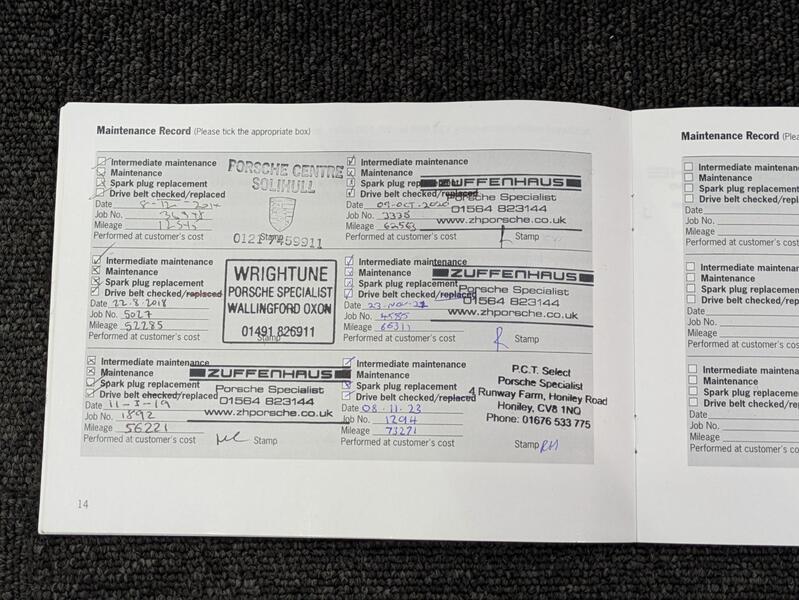 Maintenance Record (Please tick the appropriate box)
Intermediate maintenance
Maintenance
Spark plug replacement
Drive belt checked/replaced
Date 8-12-2014
Job No. 36978
Mileage
Performed at customer's cost
Stamp
PORSCHE CENTRE
SOLIHULL
0121 7459911
Intermediate maintenance
Maintenance
Spark plug
Drive belt checked/replaced
Date 09.OCT.2020
Job No. 3338
Mileage 62563
Stamp
ZUFFENHAUS
Porsche Specialist
01564 823144
www.zhporsche.co.uk
Intermediate maintenance
Maintenance
Spark plug replacement
Drive belt checked/replaced
Date 22.8.2018
Job No. 5027
Mileage 52285
Performed at customer's cost
Stamp
WRIGHTUNE
PORSCHE SPECIALIST
WALLINGFORD OXON
01491 826911
Intermediate maintenance
Maintenance
Spark plug replacement
Drive belt checked/replaced
Date 23.NOV.21
Job No. 4585
Mileage 66311
Performed at customer's cost
Stamp
ZUFFENHAUS
Porsche Specialist
01564 823144
www.zhporsche.co.uk
Intermediate maintenance
Maintenance
Spark plug replacement
Drive belt checked/replaced
Date 11-3-19
Job No. 1892
Mileage 56221
Performed at customer's cost
Stamp
ZUFFENHAUS
Porsche Specialist
01564 823144
www.zhporsche.co.uk
Intermediate maintenance
Maintenance
Spark plug replacement
Drive belt checked/replaced
Date 08.11.23
Job No. 1294
Mileage 73271
Performed at customer's cost
Stamp RH
P.C.T. Select
Porsche Specialist
4 Runway Farm, Honiley Road
Honiley, CV8 1NQ
Phone: 01676 533 775
14
Maintenance Record (Plea
Intermediate maintenan
Maintenance
Spark plug replacement
Drive belt checked/repl
Date
Job No.
Mileage
Performed at customer's c
Intermediate maintena
Maintenance
Spark plug replacemen
Drive belt checked/rep
Date
Job No.
Mileage
Performed at customer's
Intermediate maintena
Maintenance
Spark plug replaceme
Drive belt checked/re
Date
Job No.
Mileage
Performed at customer's